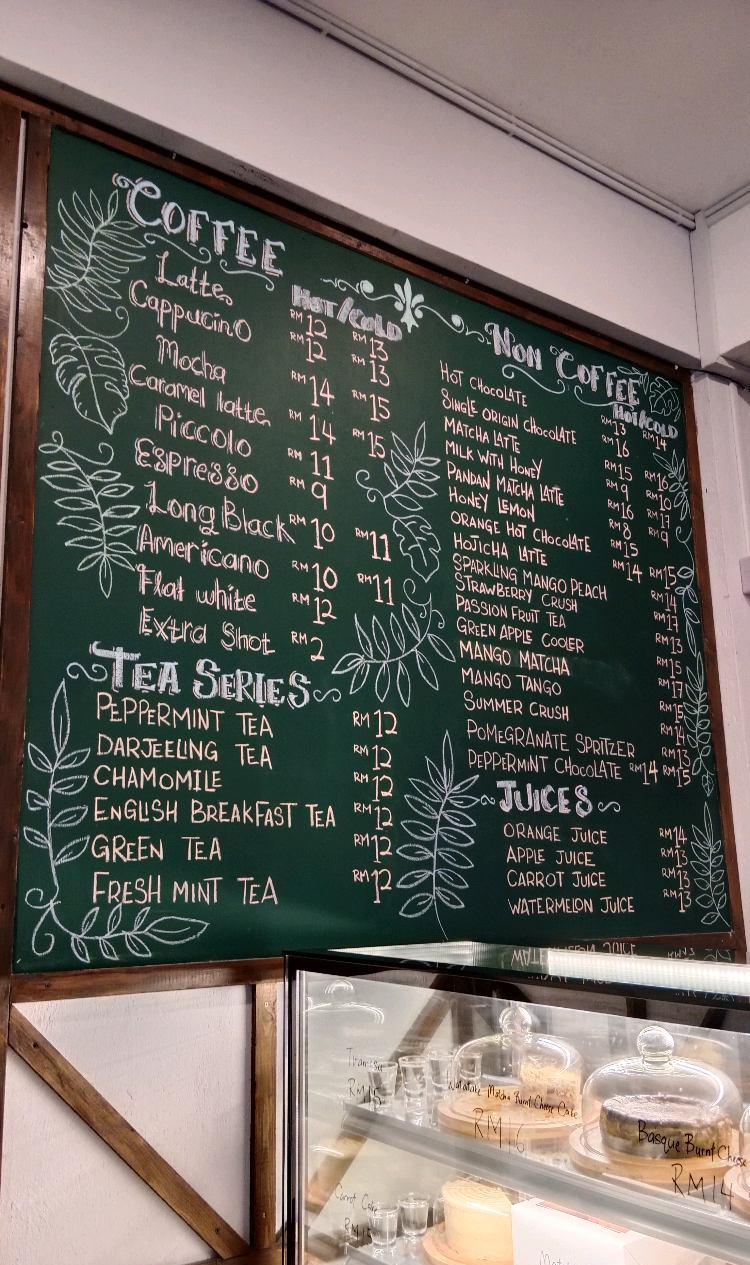 COFFEE
HOT/COLD
Latte RM12 RM13
Cappucino RM12 RM13
Mocha RM14 RM15
Caramel latte RM14 RM15
Piccolo RM11
Espresso RM9
Long Black RM10 RM11
Americano RM10 RM11
Flat white RM12
Extra Shot RM2
TEA SERIES
PEPPERMINT TEA RM12
DARJEELING TEA RM12
CHAMOMILE RM12
ENGLISH BREAKFAST TEA RM12
GREEN TEA RM12
FRESH MINT TEA RM12
NON COFFEE
Hot/COLD
HOT CHOCOLATE RM13 RM14
SINGLE ORIGIN CHOCOLATE RM16
MATCHA LATTE RM15 RM16
MILK WITH HONEY RM9 RM10
PANDAN MATCHA LATTE RM16 RM17
HONEY LEMON RM8 RM9
ORANGE HOT CHOCOLATE RM15
HOJICHA LATTE RM14 RM15
SPARKLING MANGO PEACH RM14
STRAWBERRY CRUSH RM17
PASSION FRUIT TEA RM13
GREEN APPLE COOLER RM15
MANGO MATCHA RM17
MANGO TANGO RM15
SUMMER CRUSH RM14
POMEGRANATE SPRITZER RM13
PEPPERMINT CHOCOLATE RM14 RM15
JUICES
ORANGE JUICE RM14
APPLE JUICE RM13
CARROT JUICE RM13
WATERMELON JUICE RM13
Matcha Burnt Cheese Cake
RM16
Basque Burnt Cheese
RM14
Carrot Cake